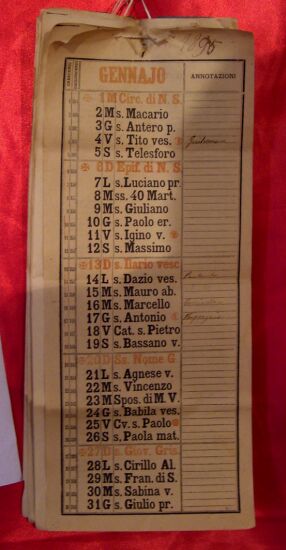 GENNAJO
ANNOTAZIONI
1 M Circ. di N. S.
2 M s. Macario
3 G s. Antero p.
4 V s. Tito ves.
5 S s. Telesforo
6 D Epif. di N. S.
7 L s. Luciano pr.
8 M ss. 40 Mart.
9 M s. Giuliano
10 G s. Paolo er.
11 V s. Igino v.
12 S s. Massimo
13 D s. Ilario vesc
14 L s. Dazio ves.
15 M s. Mauro ab.
16 M s. Marcello
17 G s. Antonio
18 V Cat. s. Pietro
19 S s. Bassano v.
20 D Ss. Nome G
21 L s. Agnese v.
22 M s. Vincenzo
23 M Spos. di M. V.
24 G s. Babila ves.
25 V Cv. s. Paolo
26 S s. Paola mat.
27 D s. Giov. Gris.
28 L s. Cirillo Al.
29 M s. Fran. di S.
30 M s. Sabina v.
31 G s. Giulio pr.